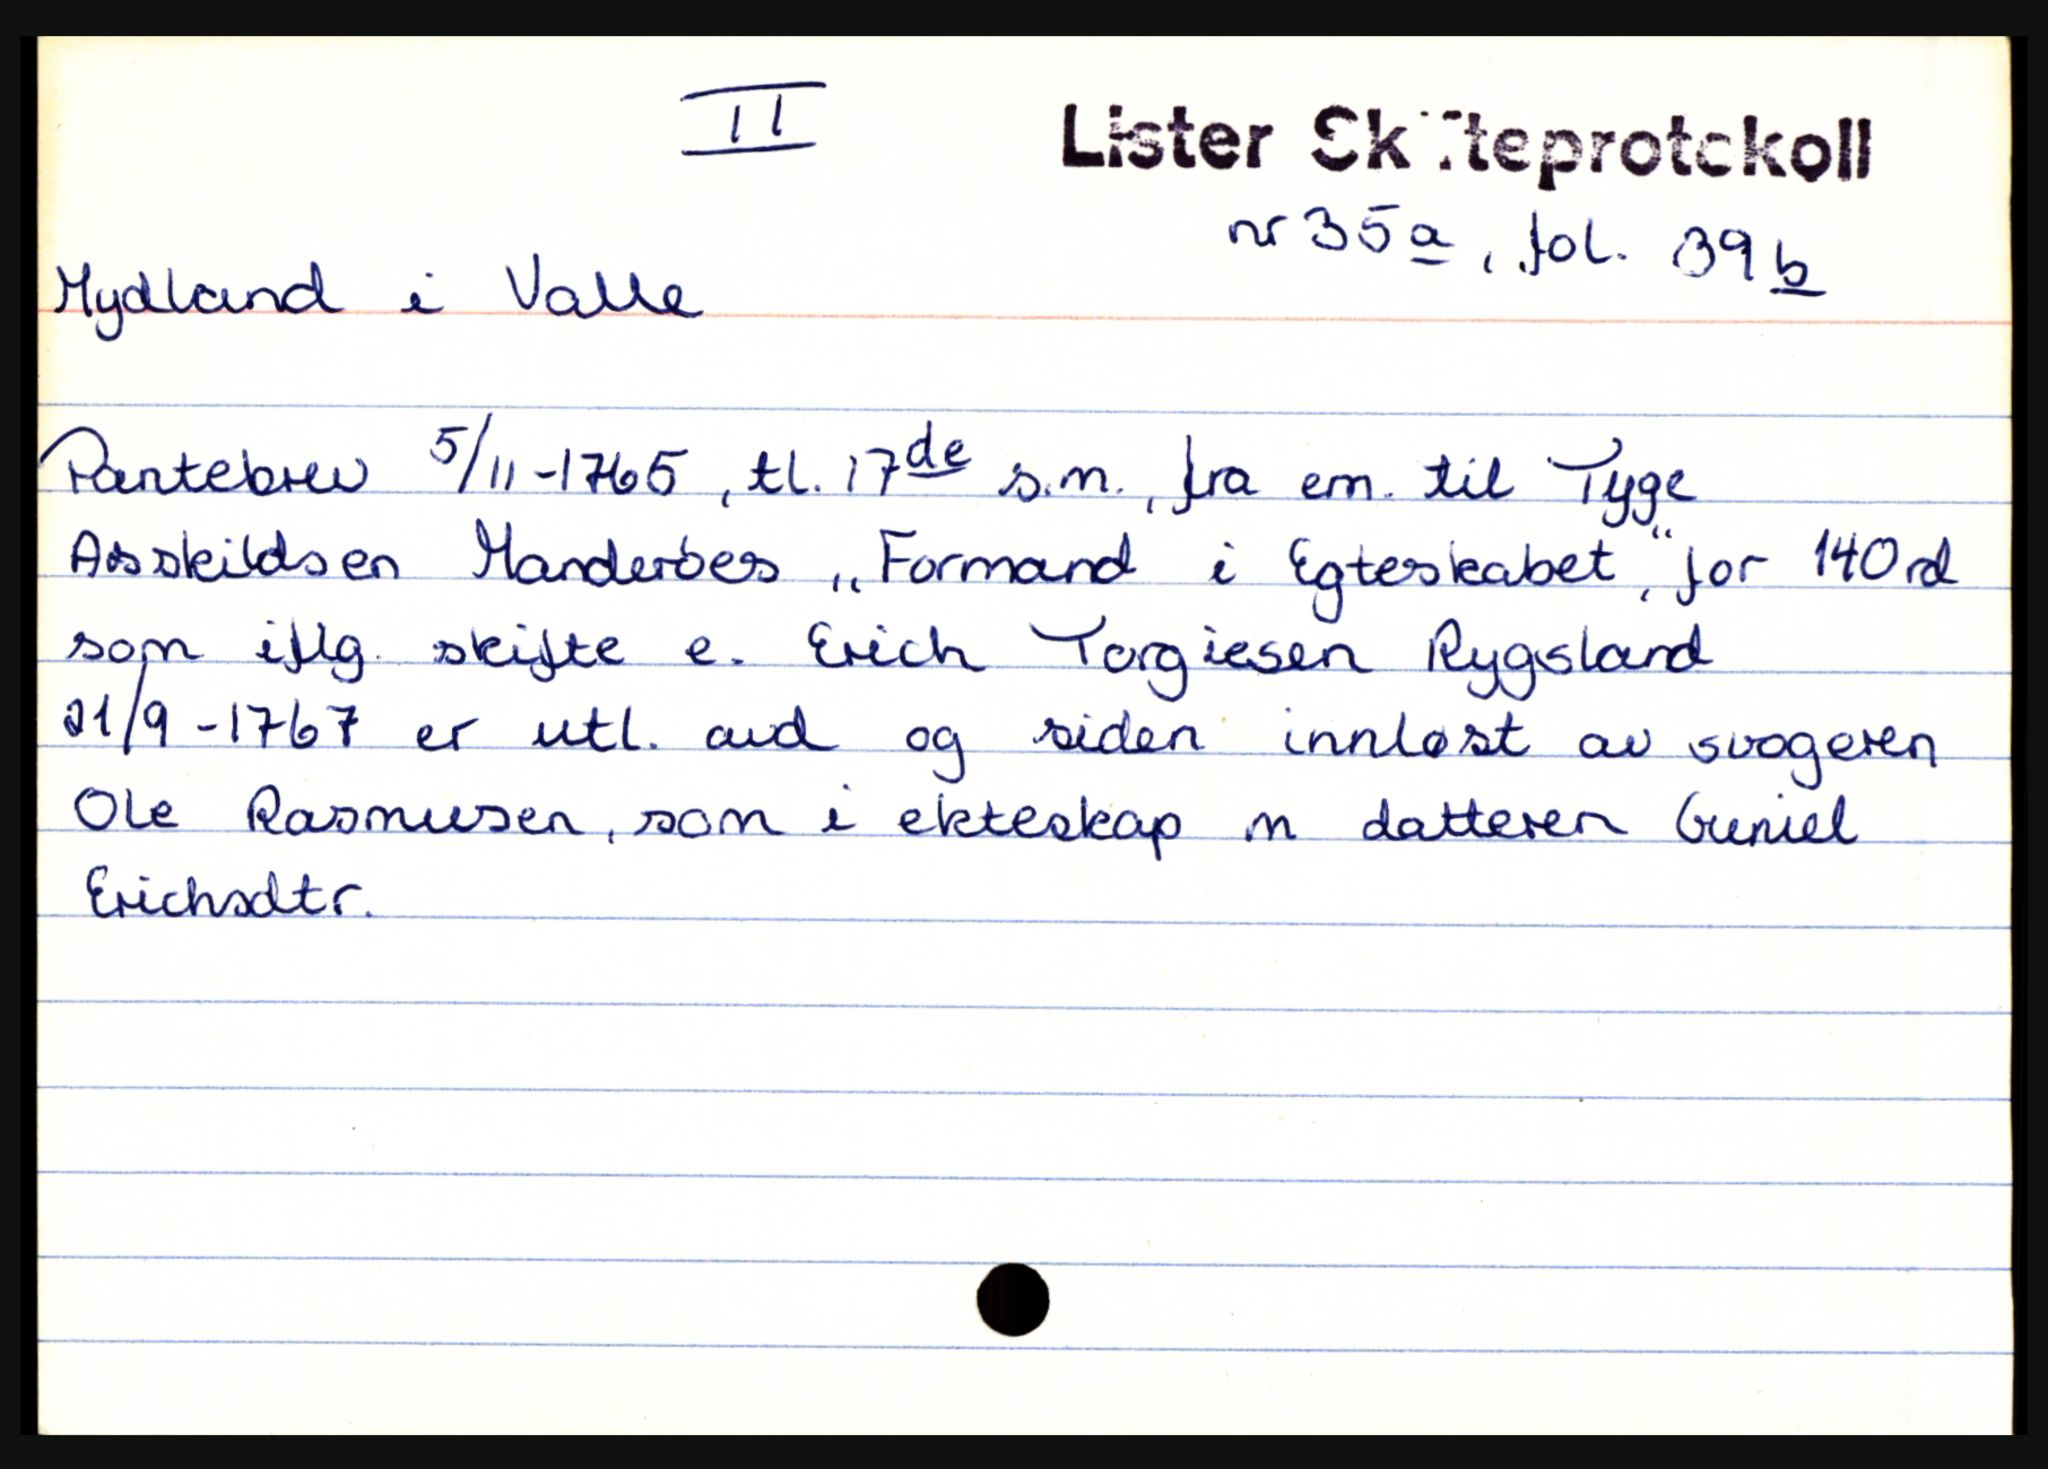 II
Lister Skifteprotokoll
nr 35a, fol. 39b
Mydland i Valle
Pantebrev 5/11-1765, tl. 17de s.m., fra em. til Tyge
Asskildsen Manderøes „Formand i Egteskabet", for 140 rd
som iflg. skifte e. Erich Torgiesen Rygsland
21/9-1767 er utl. avd og siden innløst av svogeren
Ole Rasmusen, som i ekteskap m datteren Guniel
Erichsdtr.